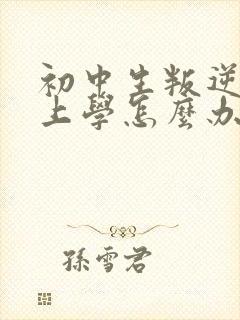 初中生叛逆
上學怎麼办
孫雪君